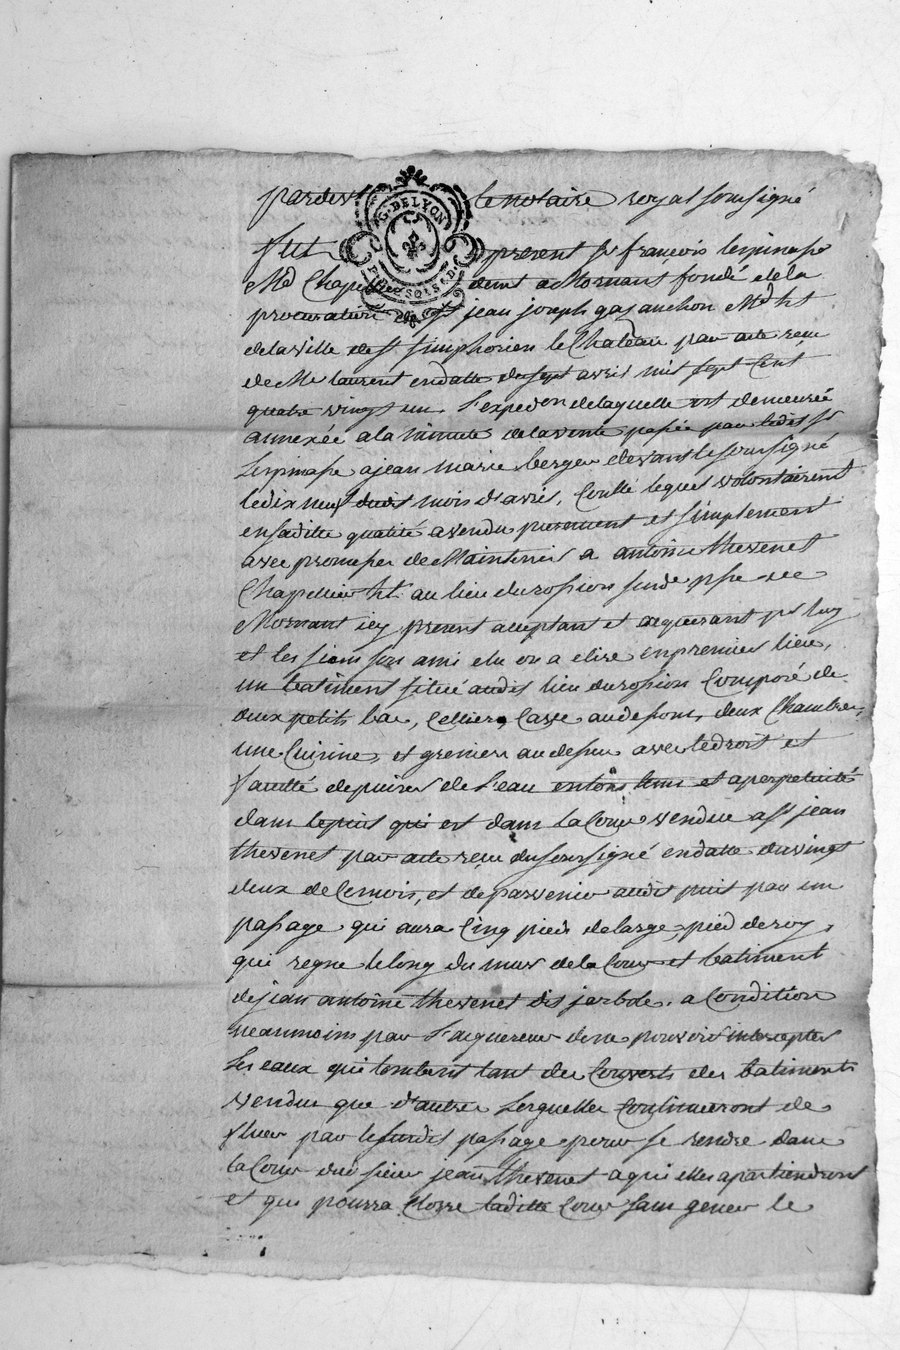 pardevt le notaire royal soussigné
G. DE LYON
fut présent Sr françois lespinasse
Md Chapellier demt a Mornant fondé de la
procuration de Sr jean joseph gas anchon Md ht
de la ville de St simphorien le Chateau par acte recu
de Me laurent en datte du sept avril mil sept Cent
quatre vingt un. L'expedon de laquelle est demeurée
annexée a la minute de la vente passée par ledit Sr
Lespinasse a jean marie berger devant le soussigné
le dix neuf dudit mois d'avril, Lequel volontairemt
en saditte qualité a vendu purement et simplement
avec promesse de Maintenir a antoine thevenet
Chapellier ht. au lieu du rossion susde psse de
Mornant icy present acceptant et acquerant pr luy
et les siens son ami elu ou a elire en premier lieu,
un batiment situé audit lieu du rossion Composé de
deux petits bas, Cellier, Cave au dessous, deux Chambres,
une Cuisine, et grenier au dessus avec le droit et
faculté de puiser de l'eau en tous tems et a perpetuité
dans le puit qui est dans la Cour vendue a Sr jean
thevenet par acte recu du soussigné en datte du vingt
deux de ce mois, et de parvenir audit puit par un
passage qui aura Cinq pied de large, pied de roy,
qui regne le long du mur de la Cour et batiment
de jean antoine thevenet dit jarbde. a Condition
neanmoins par l'acquereur de ne pouvoir intercepter
Les eaux qui tombent tant des Couverts des batiments
vendus que d'autres Lesquelles Continueront de
fluer par le susdit passage pour se rendre dans
la Cour dud sieur jean thevenet a qui elles apartiendront
et que pourra Clorre laditte Cour sans gener le